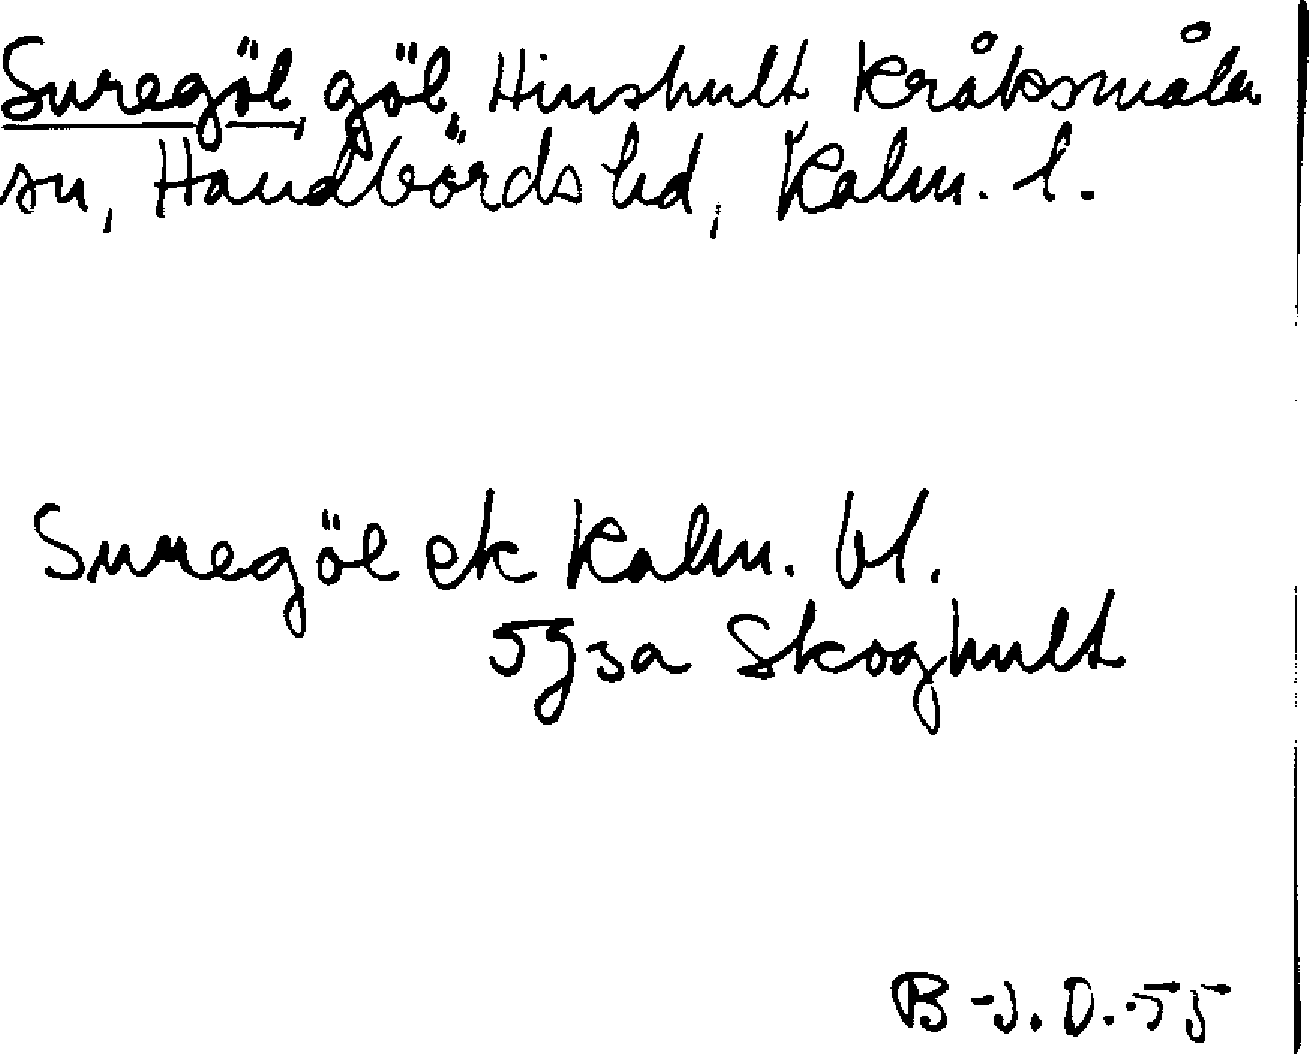 Suregöl, göl, Hinshult Kråksmåla
sn, Handbörds hd, Kalm. l.
Suregöl ek Kalm. bl.
5g3a Skoghult
B-J.D.-55